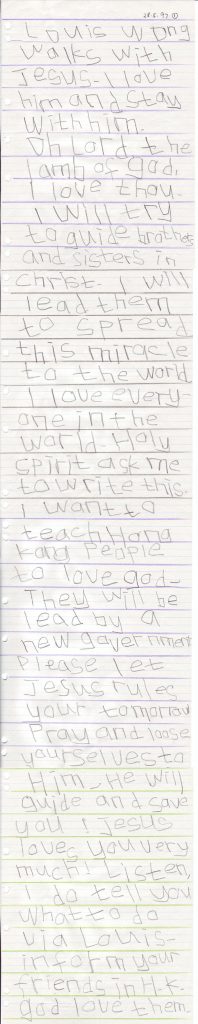 28.5.97 ①
Louis Wong
walks with
Jesus-I love
him and stay
with him.
Oh Lord the
lamb of god,
I love thou.
I will try
to guide brothers
and sisters in
christ. I will
lead them
to spread
this miracle
to the world
I love every-
one in the
world. Holy
spirit ask me
to write this.
I want to
teach Hong
Kong people
to love god-
They will be
lead by a
new government
Please let
Jesus rules
your tomorrow
Pray and loose
yourselves to
Him-He will
guide and save
you! Jesus
loves you very
much! Listen,
I do tell you
what to do
via Louis-
inform your
friends in H.K.
god love them.